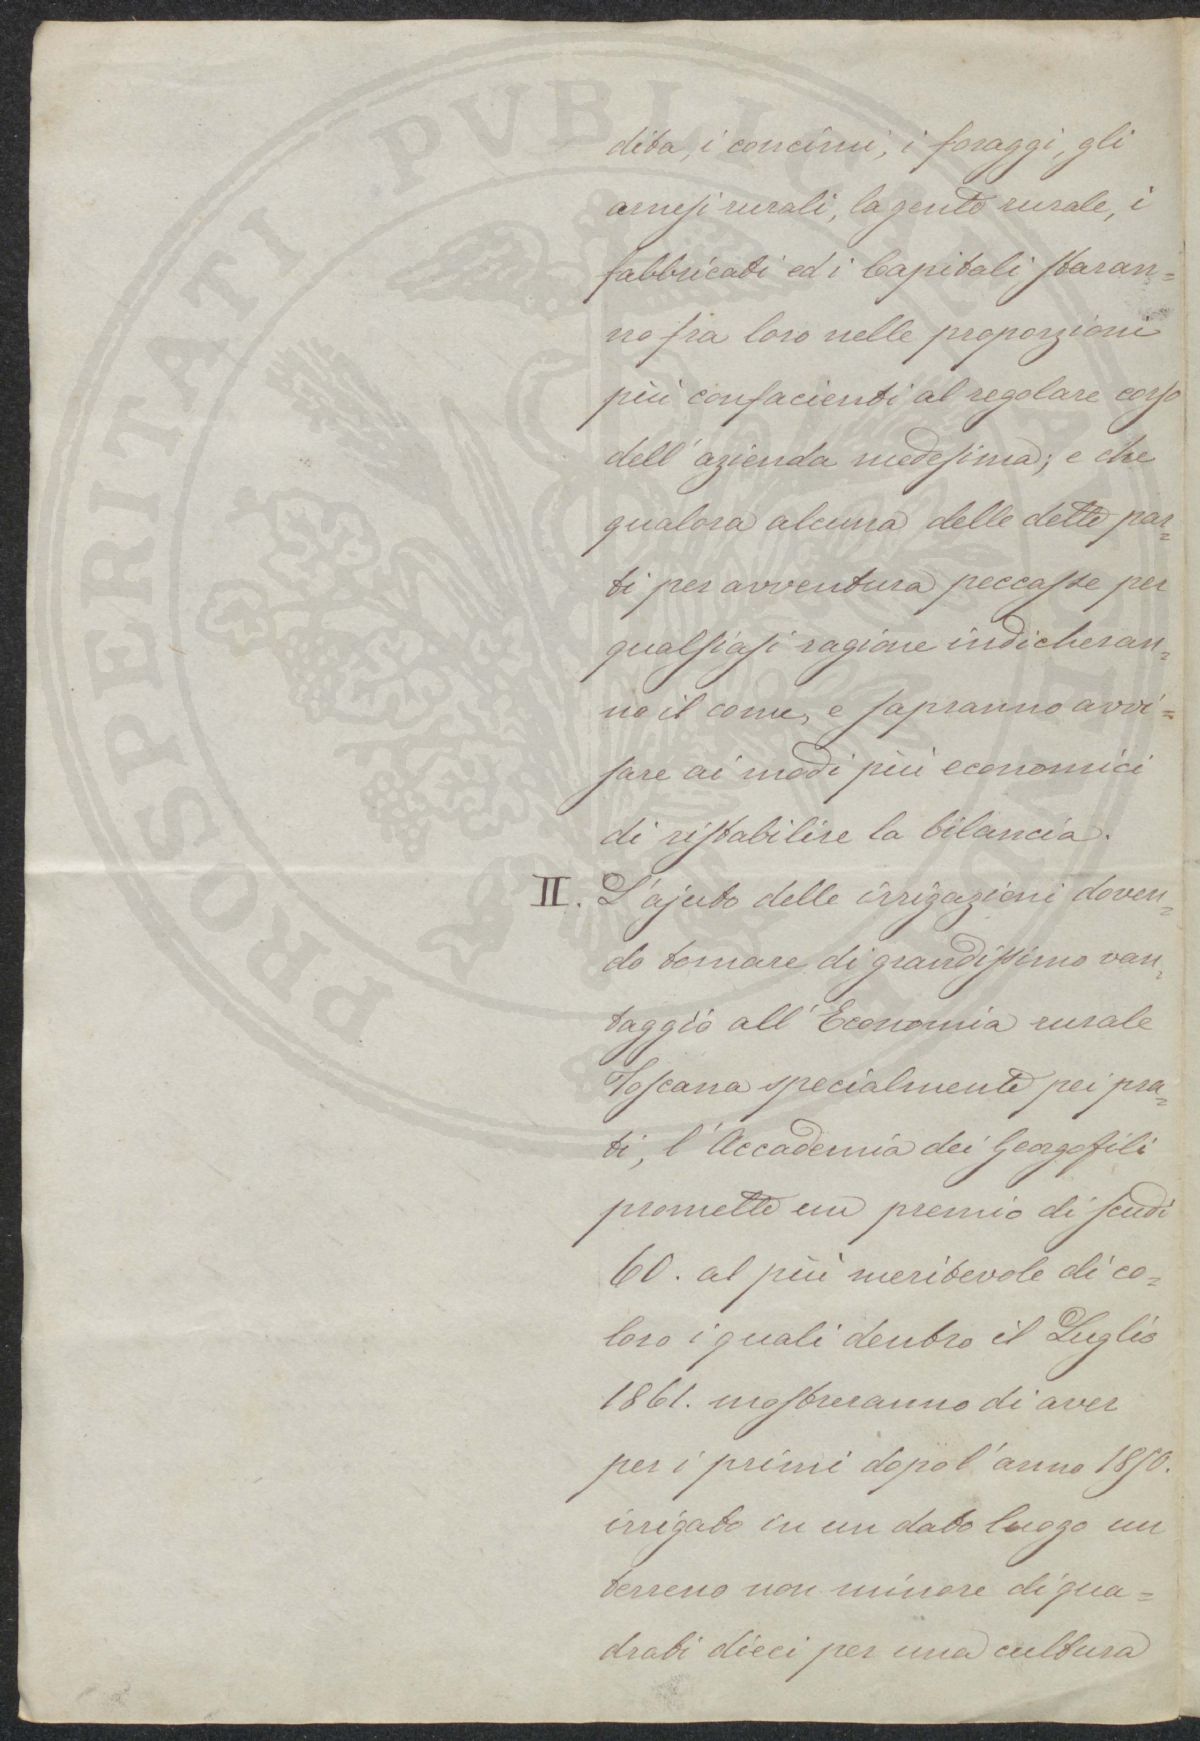 PROSPERITATI PVBLICAE AVGENDAE
dita, i concimi, i foraggi, gli
arnesi rurali, la gente rurale, i
fabbricati ed i Capitali staran=
no fra loro nelle proporzioni
più confacienti al regolare corso
dell'azienda medesima; e che
qualora alcuna delle dette par=
ti per avventura peccasse per
qualsiasi ragione indicheran=
no il come, e sapranno avvi=
sare ai modi più economici
di ristabilire la bilancia.
II. L'ajuto delle irrigazioni doven=
do tornare di grandissimo van=
taggio all'Economia rurale
Toscana specialmente pei pra=
ti, l'Accademia dei Georgofili
promette un premio di scudi
60. al più meritevole di co=
loro i quali dentro il Luglio
1861. mostreranno di aver
per i primi dopo l'anno 1850.
irrigato in un dato luogo un
terreno non minore di qua=
drati dieci per una cultura